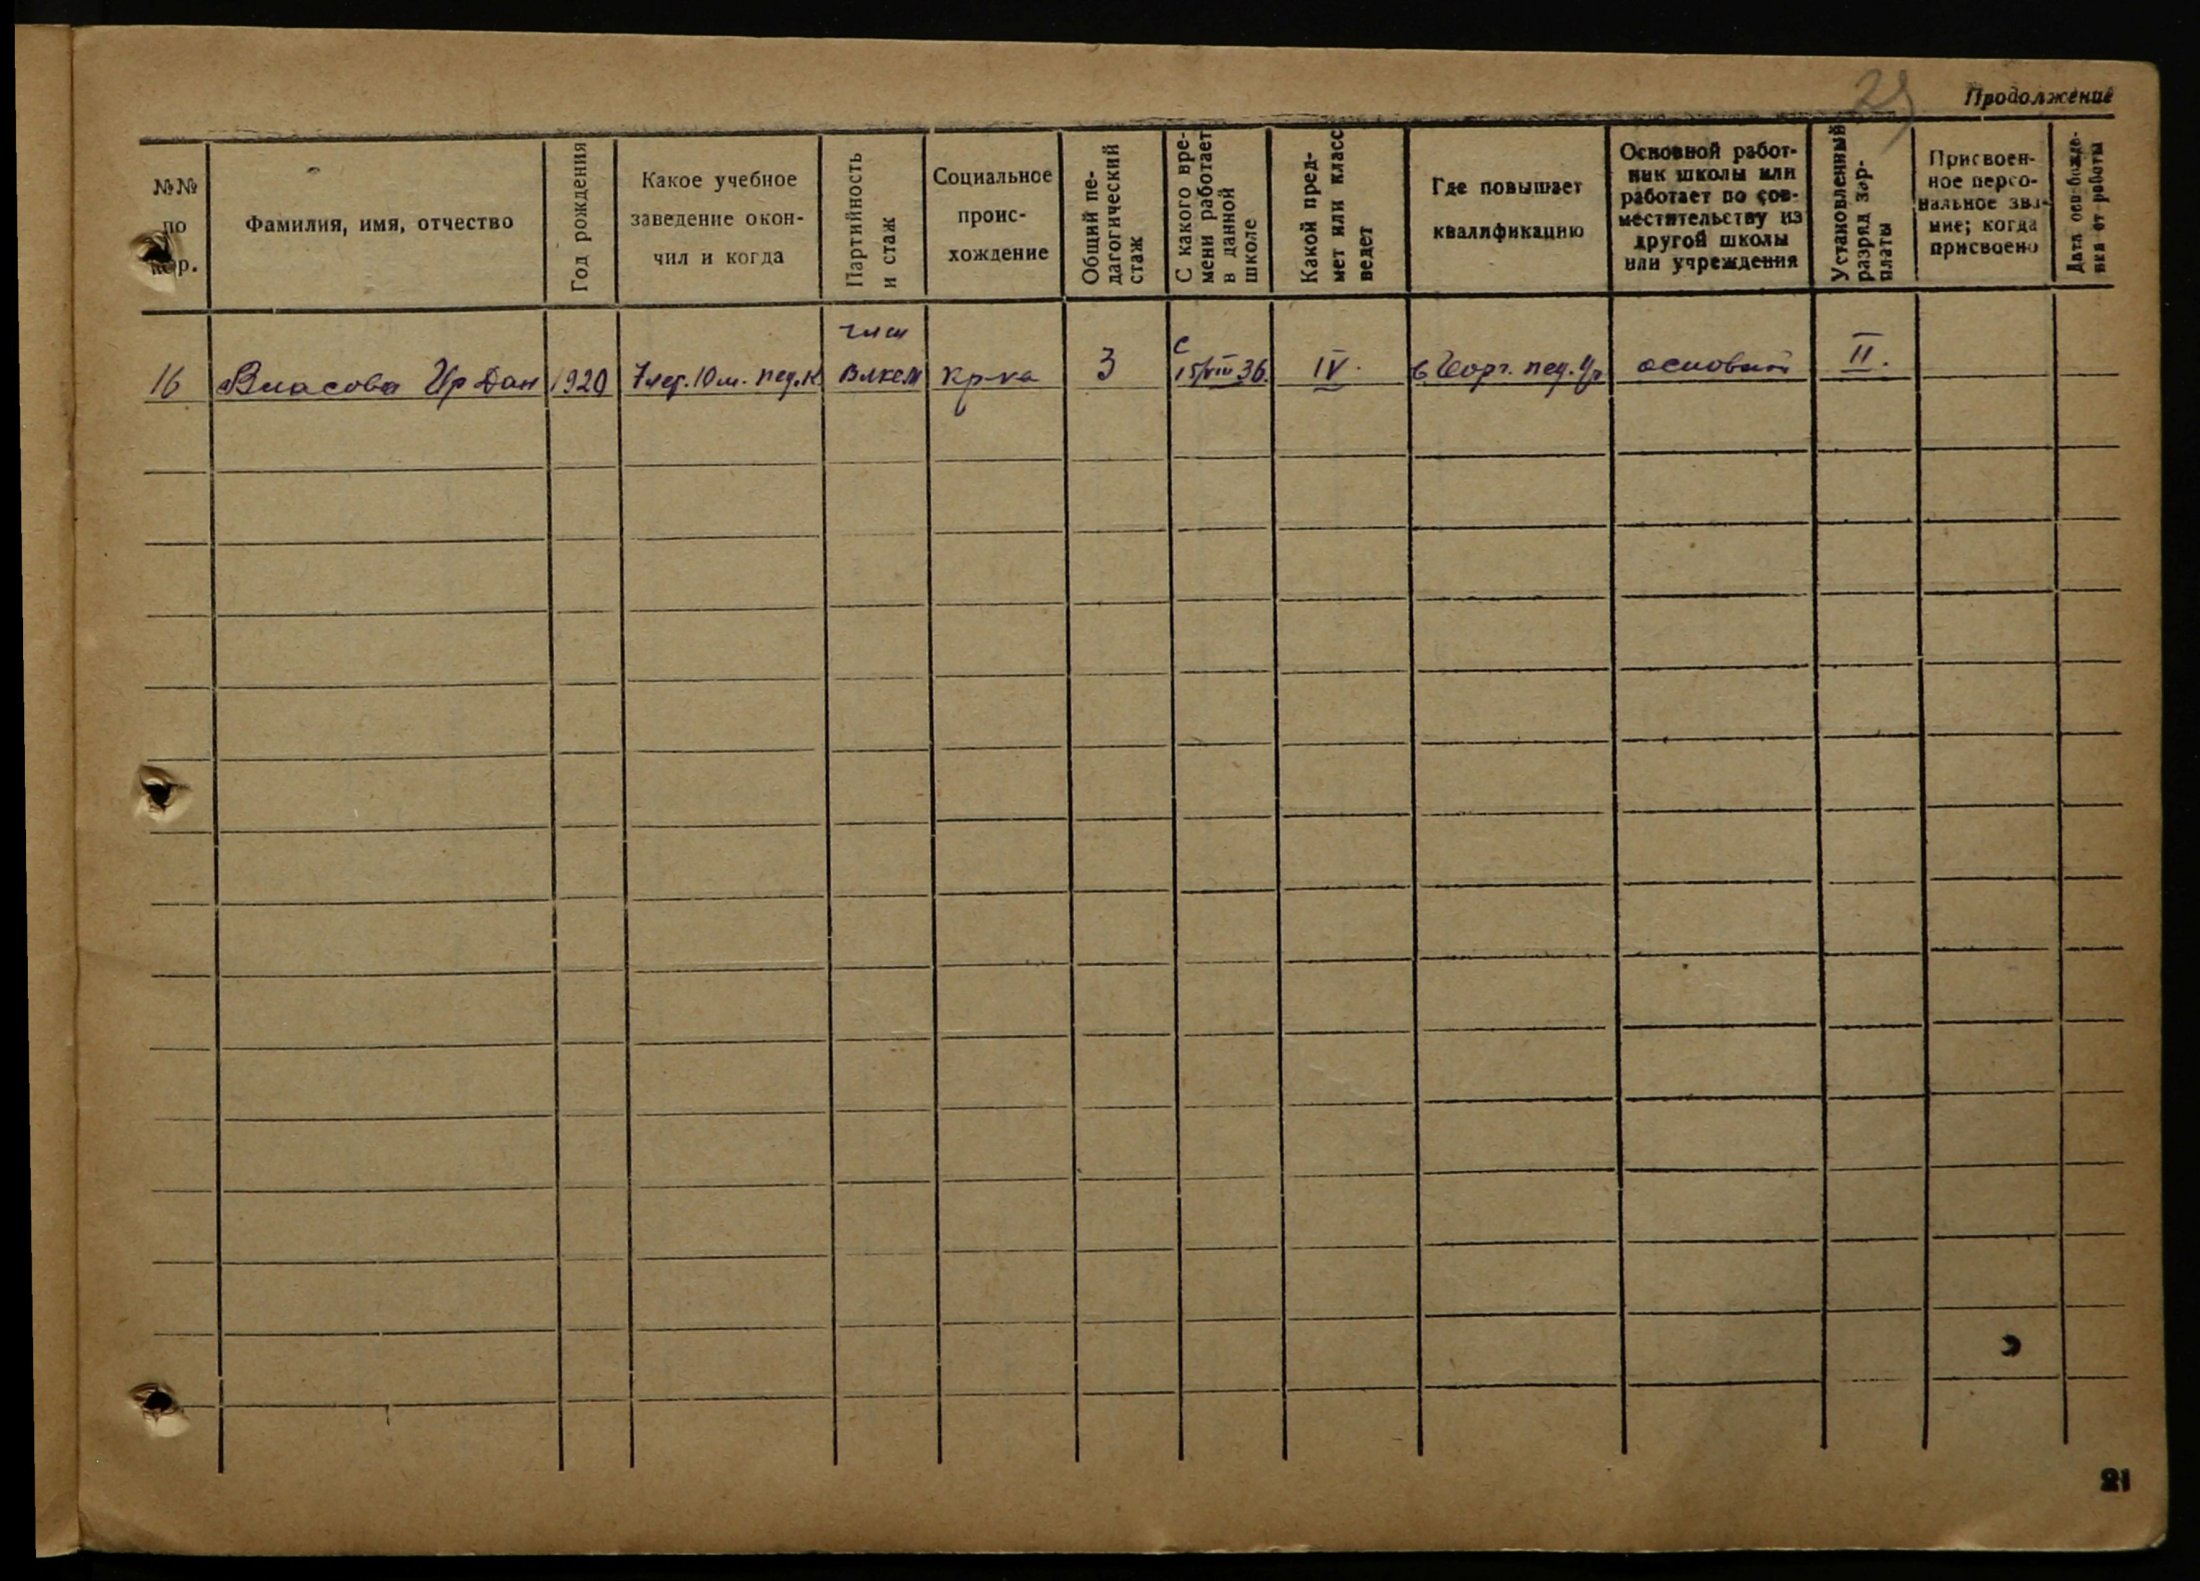 29
Продолжение
№№
по
пор.
Фамилия, имя, отчество
Год рождения
Какое учебное
заведение окон-
чил и когда
Партийность
и стаж
Социальное
проис-
хождение
Общий пе-
дагогический
стаж
С какого вре-
мени работает
в данной
школе
Какой пред-
мет или класс
ведет
Где повышает
квалификацию
Основной работ-
ник школы или
работает по сов-
местительству из
другой школы
или учреждения
Установленный
разряд зар-
платы
Присвоен-
ное персо-
нальное зва-
ние; когда
присвоено
Дата освобожде-
ния от работы
16
Власова Ир Дан
1920
7 лет. 10 м. пед. к
член
Влксм
кр-ка
3
с
15/VIII 36.
IV.
в Георг. пед. Уч
основной
II.
21